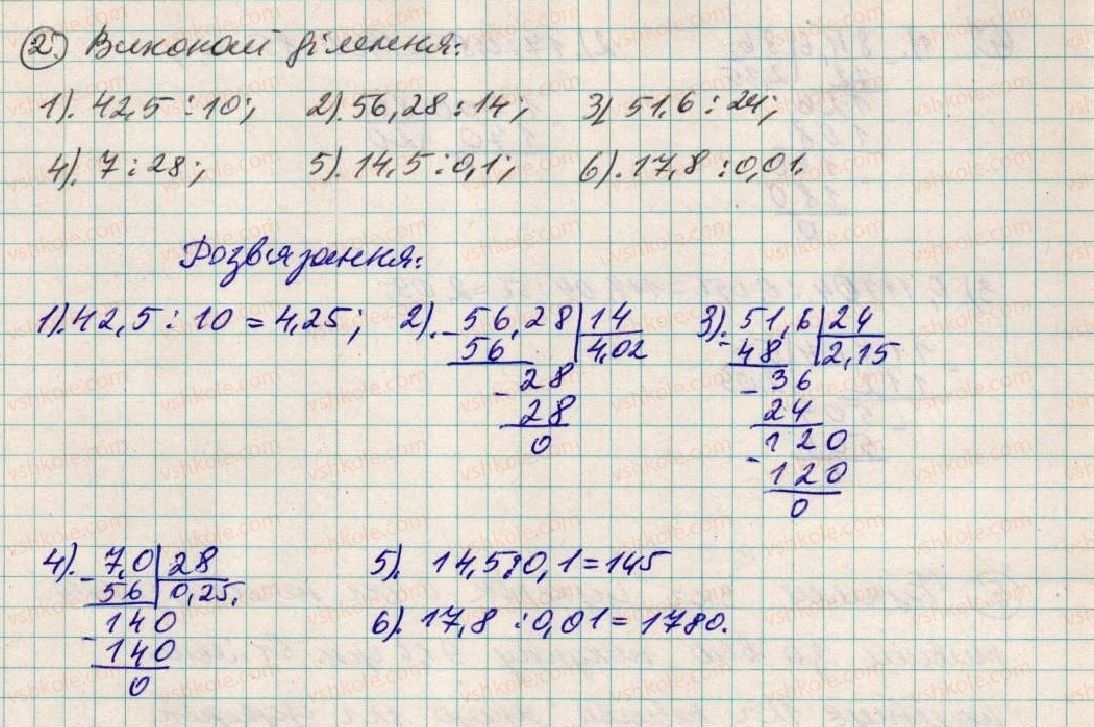 2. Виконай ділення:
1). 42,5 : 10; 2). 56,28 : 14; 3) 51,6 : 24;
4). 7 : 28; 5). 14,5 : 0,1; 6). 17,8 : 0,01.
Розв'язання:
1). 42,5 : 10 = 4,25; 2). 56,28 | 14 3). 51,6 | 24
- 56 4,02 - 48 2,15
- 28 - 36
28 24
0 - 120
120
0
4). - 7,0 | 28 5). 14,5 : 0,1 = 145
56 0,25.
- 140 6). 17,8 : 0,01 = 1780.
140
0